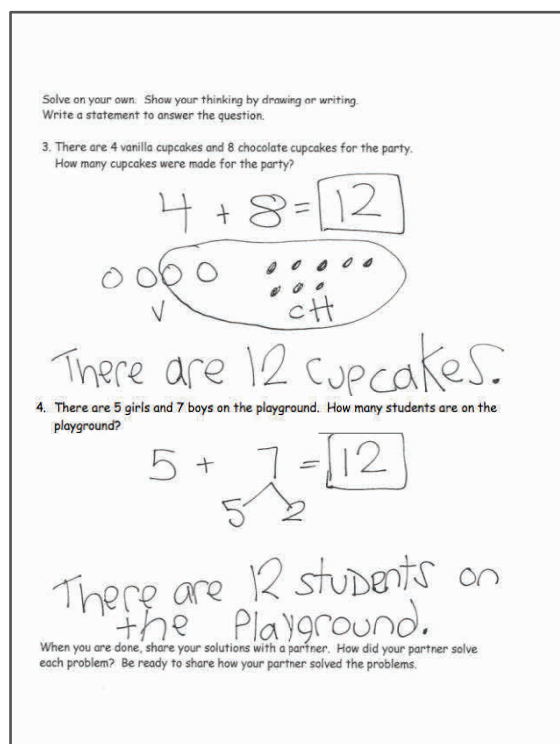 Solve on your own. Show your thinking by drawing or writing.
Write a statement to answer the question.
3. There are 4 vanilla cupcakes and 8 chocolate cupcakes for the party.
How many cupcakes were made for the party?
4 + 8 = 12
V
CH
There are 12 cupcakes.
4. There are 5 girls and 7 boys on the playground. How many students are on the
playground?
5 + 7 = 12
5 2
There are 12 students on
the Playground.
When you are done, share your solutions with a partner. How did your partner solve
each problem? Be ready to share how your partner solved the problems.